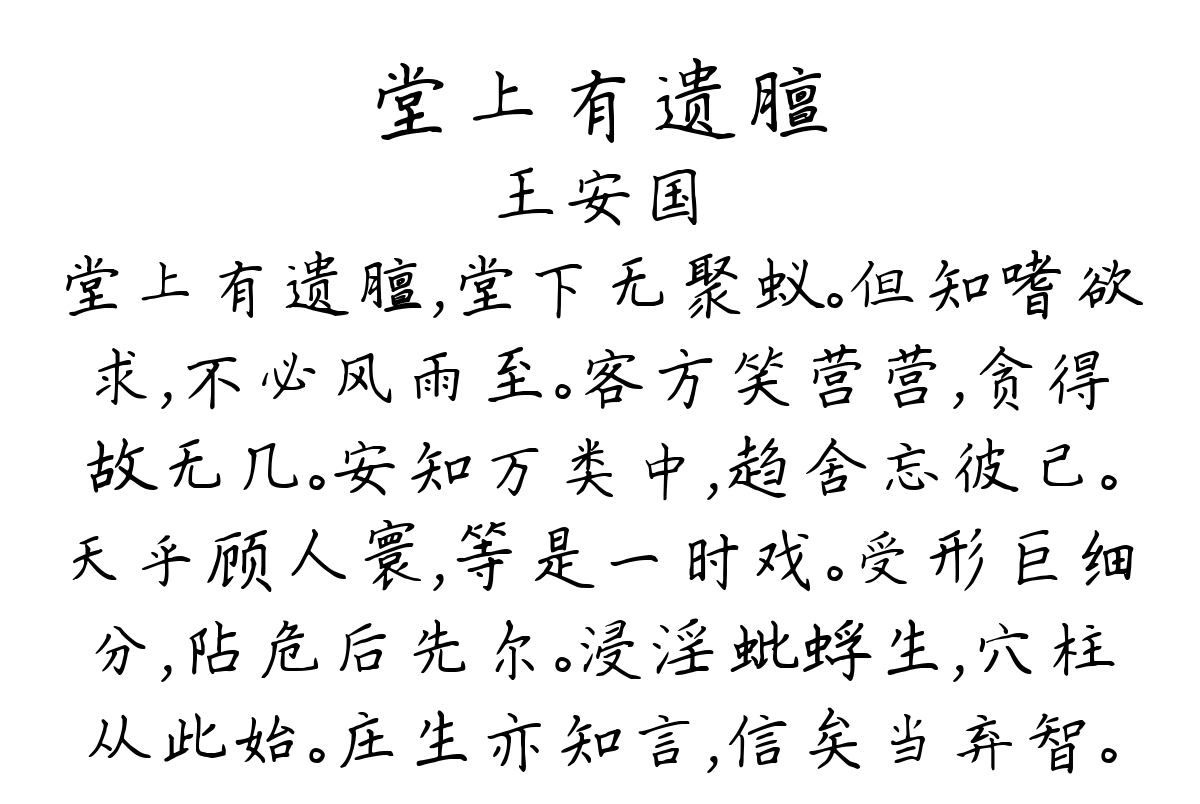 堂上有遗膻
王安国
堂上有遗膻,堂下无聚蚁。但知嗜欲
求,不必风雨至。客方笑营营,贪得
故无几。安知万类中,趋舍忘彼己。
天乎顾人寰,等是一时戏。受形巨细
分,阽危后先尔。浸淫蚍蜉生,穴柱
从此始。庄生亦知言,信矣当弃智。